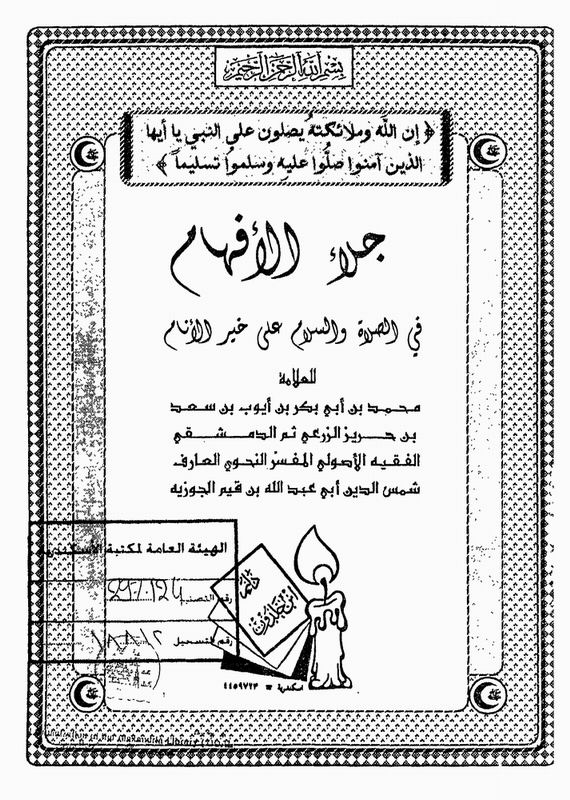 بسم الله الرحمن الرحيم
﴿ إن الله وملائكته يصلون على النبي يا أيها
الذين آمنوا صلُّوا عليه وسلموا تسليماً ﴾
جلاء الأفهام
في الصلاة والسلام على خير الأنام
للعلامة
محمد بن أبي بكر بن أيوب بن سعد
بن حريز الزرعي ثم الدمشقي
الفقيه الأصولي المفسّر النحوي العارف
شمس الدين أبي عبد الله بن قيم الجوزيه
الهيئة العامة لمكتبة الأسكندرية
رقم التصنيف
رقم التسجيل
ابن خلدون
اسكندرية ☎ ٤٤٥٩٧٢٣